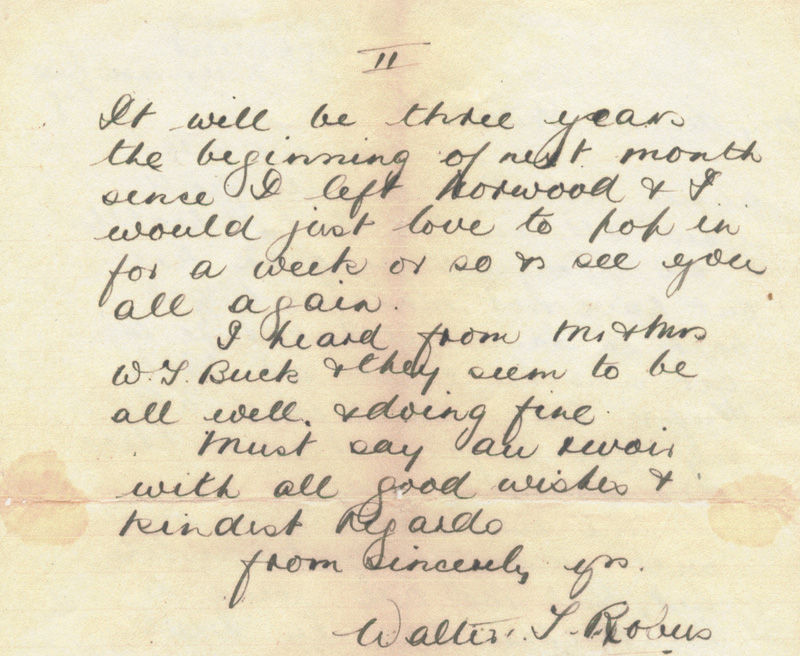 II
It will be three years
the beginning of next month
since I left Norwood & I
would just love to pop in
for a week or so & see you
all again.
I heard from Mr & Mrs
W. J. Buck & they seem to be
all well. & doing fine.
Must say au revoir
with all good wishes &
kindest Regards
from Sincerely yrs.
Walter. J.